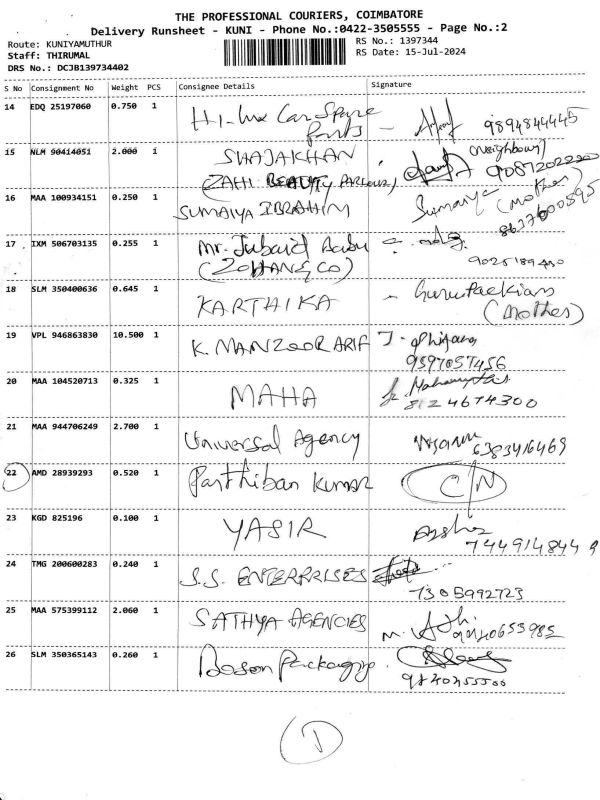 THE PROFESSIONAL COURIERS, COIMBATORE
Delivery Runsheet - KUNI - Phone No.:0422-3505555 - Page No.:2
Route: KUNIYAMUTHUR
RS No.: 1397344
Staff: THIRUMAL
RS Date: 15-Jul-2024
DRS No.: DCJB139734402
S No Consignment No Weight PCS Consignee Details Signature
14 EDQ 25197060 0.750 1 Hi-lux Car Spare
parts - 9894844445
15 NLM 90414051 2.000 1 SHAJAKHAN (Neighbour)
(ZAHI BEAUTY PARLOUR) 9087202220
16 MAA 100934151 0.250 1 SUMAIYA IBRAHIM Sumaiya (Mother)
8637600595
17 IXM 506703135 0.255 1 Mr. Jubaid Babu
(ZOHAN & CO) 9025189430
18 SLM 350400636 0.645 1 KARTHIKA - Gurupackiam
(Mother)
19 VPL 946863830 10.500 1 K. MANZOOR ARIF J.
9597057456
20 MAA 104520713 0.325 1 MAHA
8124674300
21 MAA 944706249 2.700 1 Universal Agency
6383416469
22 AMD 28939293 0.520 1 Parthiban Kumar C/N
23 KGD 825196 0.100 1 YASIR Aysha
7449148449
24 TMG 200600283 0.240 1 S.S. ENTERPRISES
7305992723
25 MAA 575399112 2.060 1 SATHYA AGENCIES M.
26 SLM 350365143 0.260 1 Boson Packaging
D